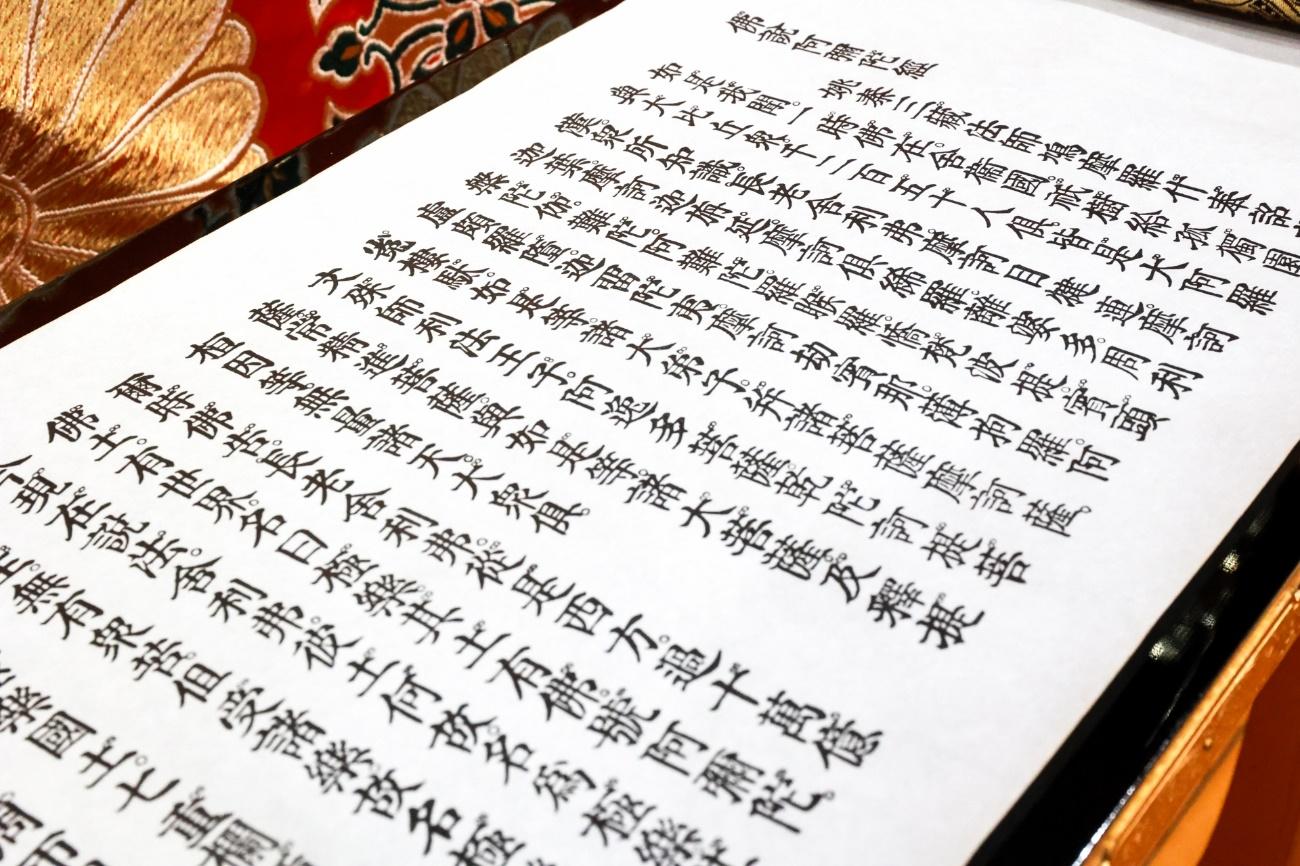 佛説阿彌陀經
姚秦三藏法師鳩摩羅什奉詔
如是我聞。一時佛在。舍衞國。祇樹給孤獨園
與大比丘衆。千二百五十人倶。皆是大阿羅
漢。衆所知識。長老舍利弗。摩訶目犍連。摩訶
迦葉。摩訶迦旃延。摩訶倶絺羅。離婆多。周利
槃陀伽。難陀。阿難陀。羅睺羅。憍梵波提。賓頭
盧頗羅墮。迦留陀夷。摩訶劫賓那。薄拘羅。阿
㝹樓駄。如是等。諸大弟子。并諸菩薩。摩訶薩。
文殊師利。法王子。阿逸多菩薩。乾陀訶提菩
薩。常精進菩薩。與如是等。諸大菩薩。及釋提
桓因等。無量諸天。大衆倶。
爾時佛告。長老舍利弗。從是西方。過十萬億
佛土。有世界。名曰極樂。其土有佛。號阿彌陀。
今現在説法。舍利弗。彼土何故。名爲極樂
生。無有衆苦。但受諸樂。故名極
樂國土。七重欄